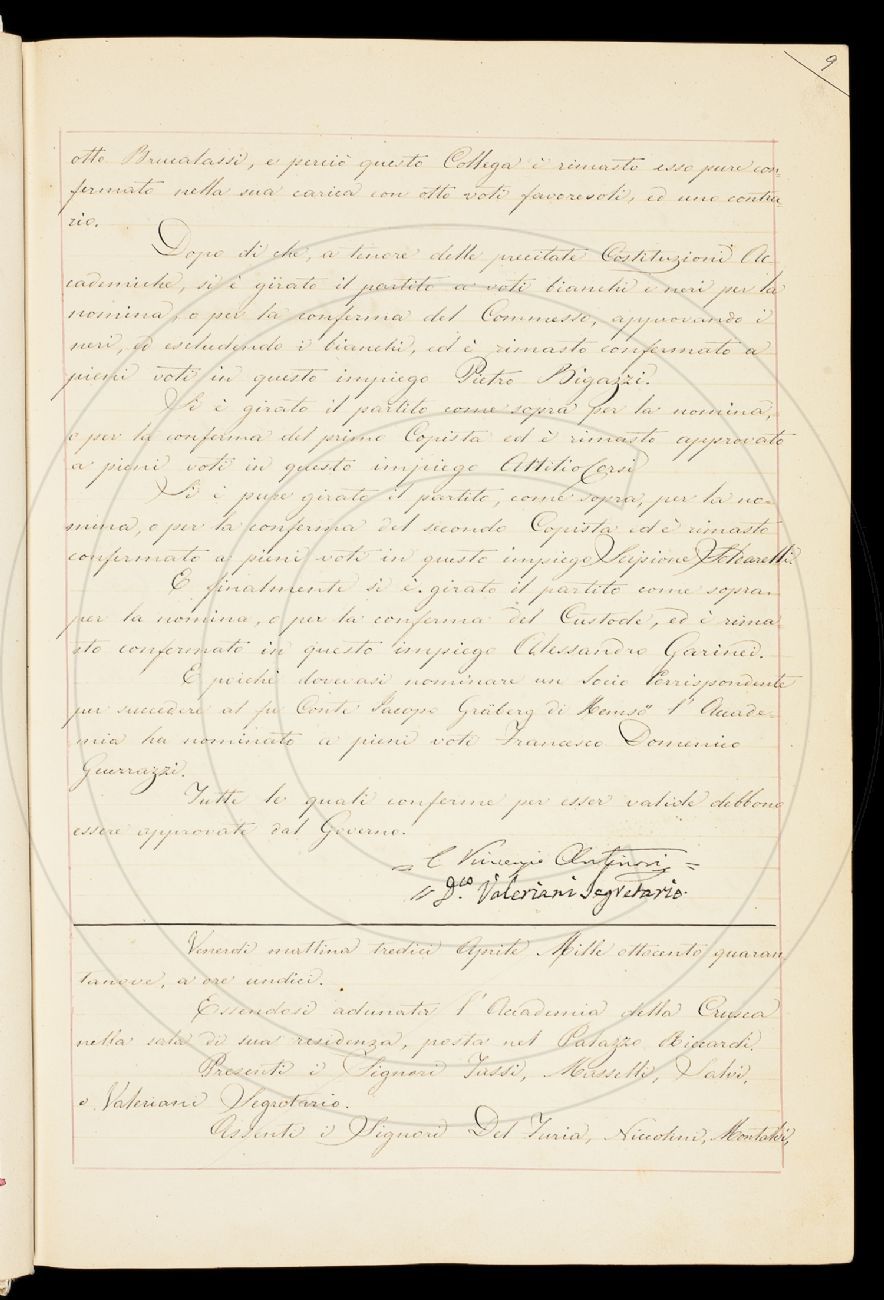 9
otto Brucalassi, e perciò questo Collega è rimasto esso pure con-
fermato nella sua carica con otto voti favorevoli, ed uno contra-
rio.
Dopo di che, a tenore delle precitate Costituzioni Ac-
cademiche, si è girato il partito a voti bianchi e neri per la
nomina, o per la conferma del Commesso, approvando i
neri, ed escludendo i bianchi, ed è rimasto confermato a
pieni voti in questo impiego Pietro Bigazzi.
Si è girato il partito come sopra per la nomina,
o per la conferma del primo Copista ed è rimasto approvato
a pieni voti in questo impiego Attilio Corsi
Si è pure girato il partito, come sopra, per la no-
mina, o per la conferma del secondo Copista ed è rimasto
confermato a pieni voti in questo impiego Scipione
E finalmente si è girato il partito come sopra
per la nomina, o per la conferma del Custode, ed è rima
sto confermato in questo impiego Alessandro Garinei.
E poichè dovevasi nominare un Socio Corrispondente
per succedere al fu Conte Jacopo Gräberg di Hemsö l'Accade-
mia ha nominato a pieni voti Francesco Domenico
Guerrazzi.
Tutte le quali conferme per esser valide debbono
essere approvate dal Governo.
= Vincenzio Antinori =
// D.co Valeriani Segretario.
Venerdì mattina tredici Aprile Mille ottocento quaran
tanove, a ore undici.
Essendosi adunata l'Accademia della Crusca
nella sala di sua residenza, posta nel Palazzo Riccardi.
Presenti i Signori Tassi, Masselli, Salvi,
e Valeriani Segretario.
Assenti i Signori Del Furia, Niccolini, Montalvi,